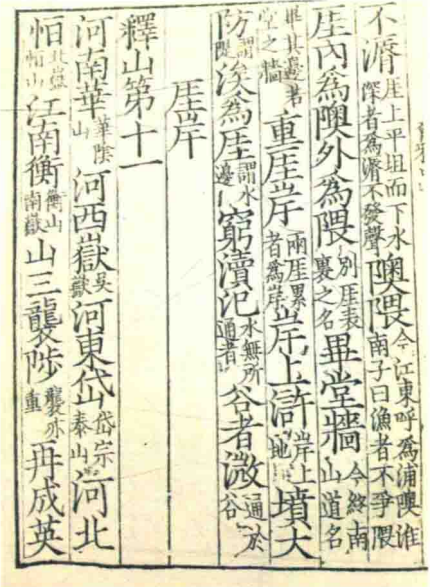 不漘厓上平坦而下水深者為漘不發聲隩隈今江東呼為浦隩淮南子曰漁者不爭隈
厓內為隩外為隈別厓表裏之名畢堂牆今終南山道名
畢其邊若堂之牆重厓岸兩厓累者為岸岸上滸岸上地墳大
防謂隄涘為厓謂水邊窮瀆汜水無所通者谷者溦通於谷
厓岸
釋山第十一
河南華華陰山河西嶽吳嶽河東岱岱宗泰山河北
恒北嶽恒山江南衡衡山南嶽山三襲陟襲亦重再成英